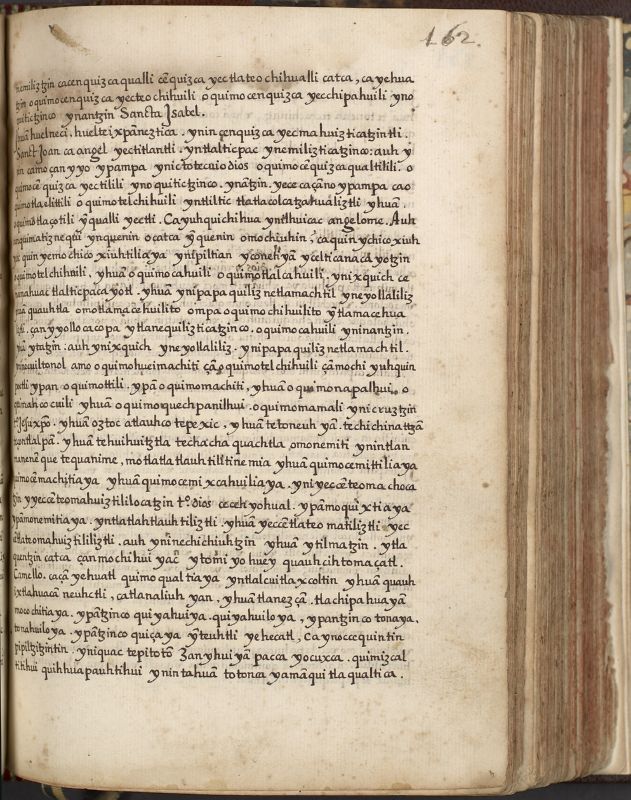 162.
nemiliztzin ca cenquizca qualli cēquizca yectlateochihualli catca, ca yehua
tzin oquimocenquizca yecteochihuili oquimocenquizca yecchipahuili yno
quitictzinco ynantzin Sancta Jsabel.
huel neci, huel teixpāneztica. ynin çenquizca yecmahuizticatzintli.
Sanct Joan ca angel yectitlantli. yn tlalticpac ynemilizticatzinco: auh y
in ca mo çan yyo ypampa ynic totecuio dios oquimocēquizcaqualtilili. o
quimocēquizca yectilili yno quitictzinco. ynātzin. yece ca çāno ypampa ca o
quimotlaelittili oquimotelchihuili yn tliltic tlatlacolcatzahualiztli yhuā.
oquimotlaçotili ȳ qualli yectli. Ca yuhquichihua yn ilhuicac angelome. Auh
anquimatiznequi yn quenin ocatca ȳ quenin omochiuhin, ca quin ychicoxiuh
quin yemochicoxiuhtilia ya ynipiltian yconeyā ycelticanaca yotzin
oquimotelchihuili, yhuā oquimocahuili oquimotlalcahuili, ynixquich ce
manahuac tlalticpacayotl. yhuā ynipapaquiliz netlamachtil yneyollaliliz
yhuā quauhtla omotlamacehuilito ompa oquimochihuilito ȳ tlamacehua
liztli. çan yyollocacopa ytlanequilizticatzinco. oquimocahuili yninantzin.
yhuā ytatzin: auh ynixquich yneyollaliliz. ynipapaquiliz netlamachtil.
ynineçuiltonol amo oquimohueimachiti çā oquimotelchihuili çā mochi yuhquin
poctli ypan oquimottili. ypā oquimomachiti, yhuā oquimonapalhui. o
quimahcocuili yhuā oquimoquechpanilhui. oquimomamali ynicruztzin
tt.o Jesu xp̄o. yhuā oztoc atlauhco tepexic, yhuā tetoneuh yā. techichinatzā
ixtlalpā. yhuā tehuihuitztla techachaquachtla omonemiti ynintlan
manenā que tequanime, motlatlatlauhtilitinemia yhuā quimocemittiliaya
quimocēmachitiaya yhuā quimocemixcahuiliaya. yni yeccēteomachoca
tzin yyeccēteomahuiztililocatzin t.o dios cecehyohual. ypā moquixtiaya
ypā monemitiaya. yn tlatlahtlauhtiliztli. yhuā yeccētlateomatiliztli yec
cētlateomahuiztililiztli. auh yninechichiuhtzin yhuā ytilmatzin. ytla
quentzin catca çan mochihui yac ytomi yohuey quauhçihtomaçatl.
Camello. ca çā yehuatl quimoqualtiaya yn tlalcuitlaxcoltin yhuā quauh
ixtlahuacā neuhctli, catlanaliuhyan, yhuā tlanezçā. tlachipahuayā
mocochitiaya. ypātzinco quiyahuiya. quiyahuiloya, ypantzinco tonaya,
tonahuiloya. ypātzinco quiçaya ȳ teuhtli yehecatl, Ca ynoccequintin
pipiltzitzintin. yniquac tepitotō Zan yhuiyā pacca yocuxca. quimizcal
titihui quihhuapauhtihui ynintahuā totonca yamāqui tlaqualtica.